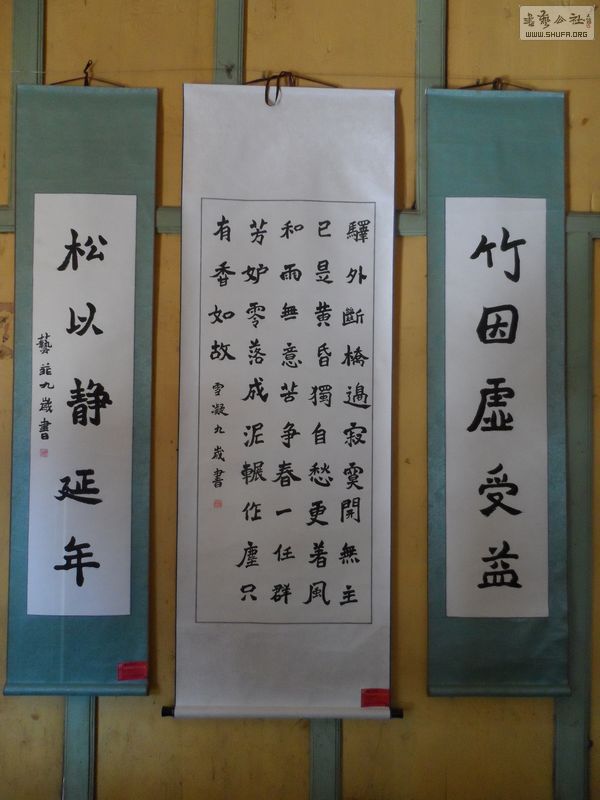 書藝公社
WWW.SHUFA.ORG
竹因虚受益
驛外斷橋邊寂寞開無主
已是黄昏獨自愁更著風
和雨無意苦争春一任群
芳妒零落成泥輾作塵只
有香如故
雪凝九歲書
松以静延年
九歲書